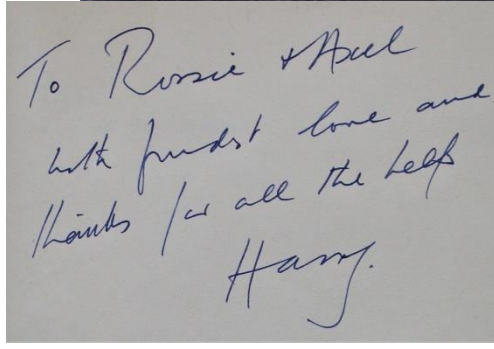 To Rossie + Axel
with fondest love and
thanks for all the help
Harry.